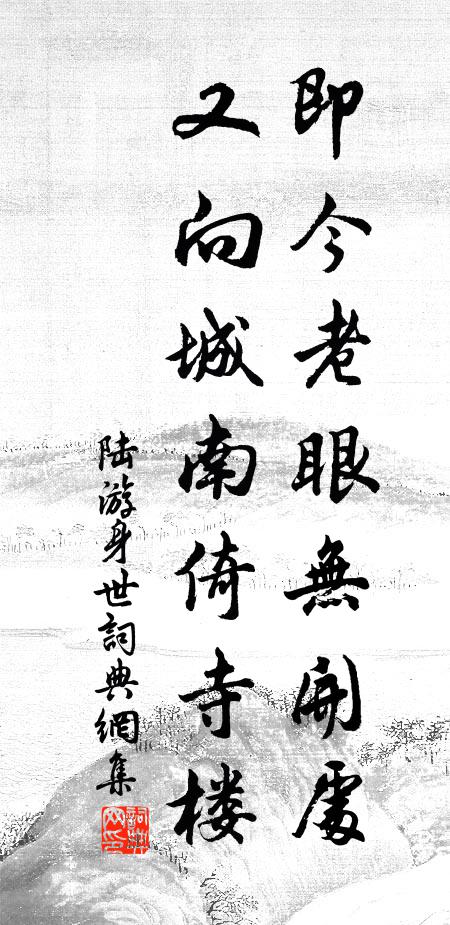 即今老眼無開處
又向城南倚寺楼
陸游身世詞典網集